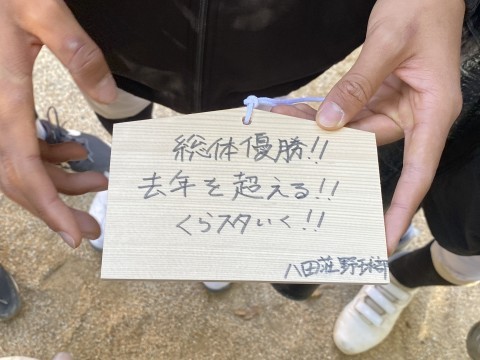 総体優勝!!
去年を超える!!
くらスタいく!!
八田荘野球部